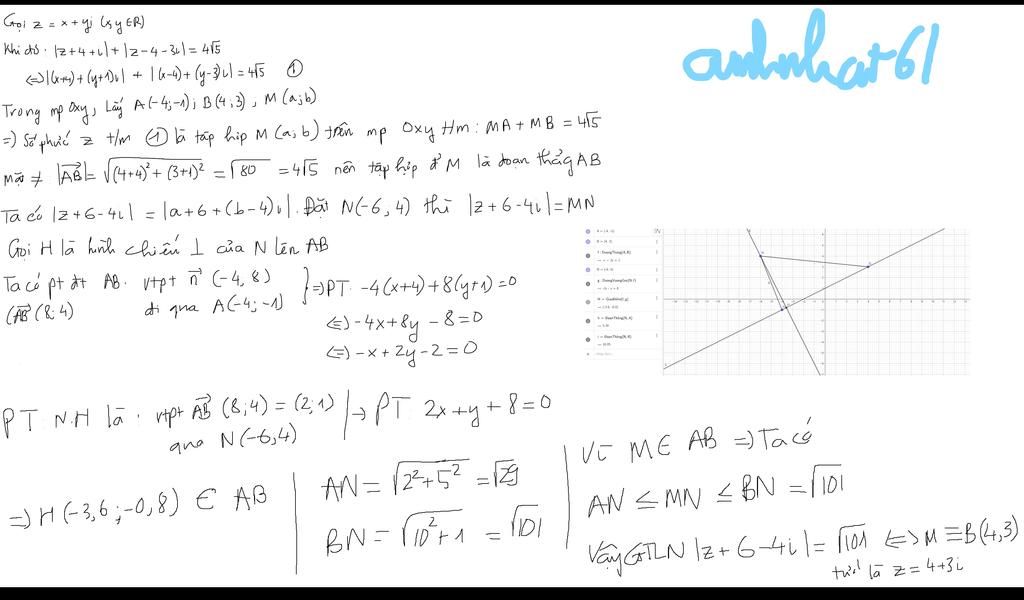 Gọi z = x + yi (x,y ∈ R)
Khi đó: |z+4+i| + |z-4-3i| = 4√5
⇔ |(x+4) + (y+1)i| + |(x-4) + (y-3)i| = 4√5 ①
Trong mp Oxy, Lấy A(-4;-1); B(4,3), M(a;b)
⇒ Số phức z t/m ① là tập hợp M(a,b) trên mp Oxy t/m: MA + MB = 4√5
mặt ≠ |AB| = √((4+4)² + (3+1)²) = √80 = 4√5 nên tập hợp đ' M là đoạn thẳng AB
Ta có |z+6-4i| = |a+6+(b-4)i|. Đặt N(-6,4) thì |z+6-4i| = MN
Gọi H là hình chiếu ⊥ của N lên AB
Ta có pt đt AB: vtpt n (-4,8)
(AB (8;4) đi qua A(-4;-1)
⇒ PT -4(x+4) + 8(y+1) = 0
⇔ -4x + 8y - 8 = 0
⇔ -x + 2y - 2 = 0
PT NH là: vtpt AB (8;4) = (2;1)
qua N(-6,4)
→ PT 2x + y + 8 = 0
⇒ H(-3,6;-0,8) ∈ AB
AN = √(2²+5²) = √29
BN = √(10²+1) = √101
Vì M ∈ AB ⇒ Ta có
AN ≤ MN ≤ BN = √101
Vậy GTLN |z+6-4i| = √101 ⇔ M ≡ B(4,3)
tức là z = 4+3i
anhnhat61